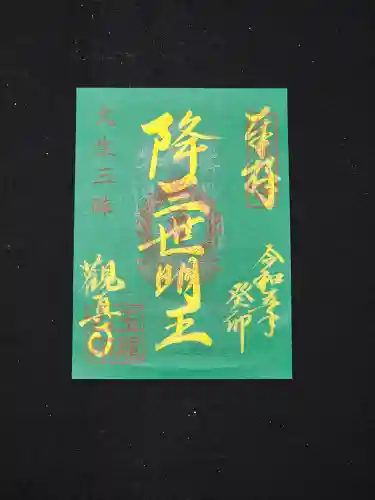 奉拝
令和五年
癸卯
降三世明王
久生三昧
觀真